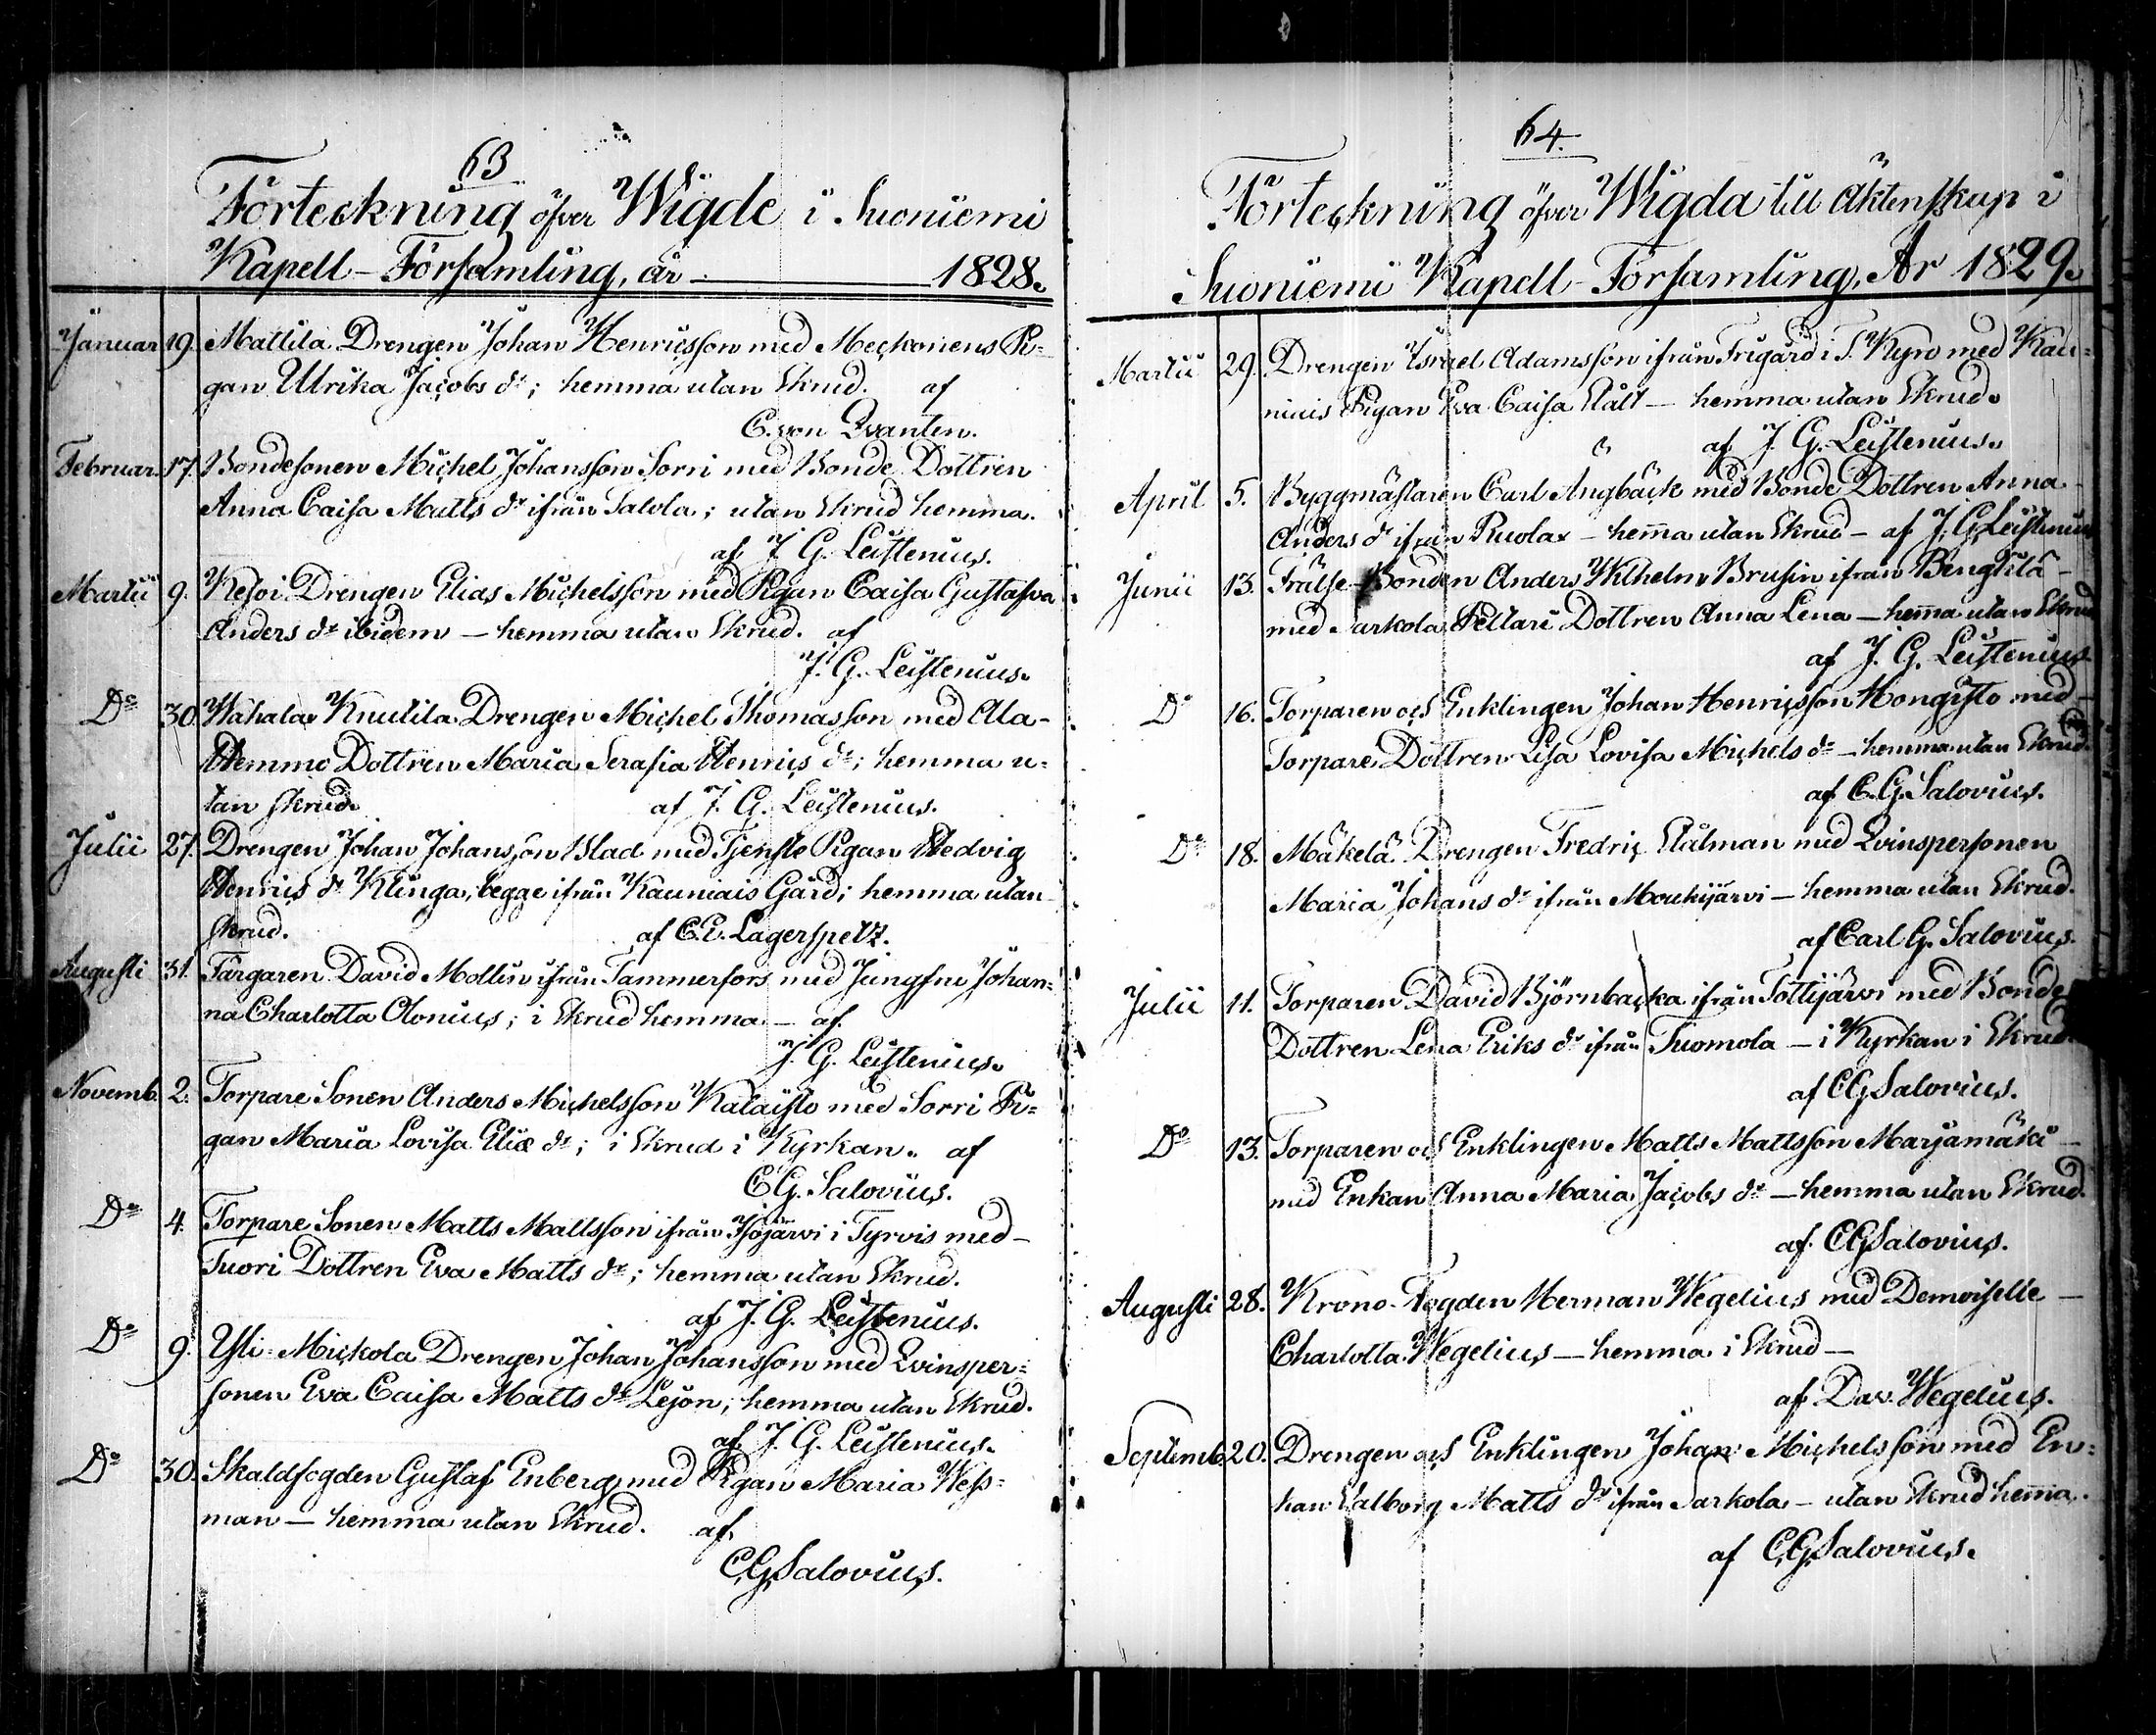 63
Förteckning öfver Wigde i Suoniemi
Kapell-Församling, år 1828.
Januar 19. Mattila Drengen Johan Henricsson med Meckonens Pi=
gan Ulrika Jacobs dr; hemma utan Skrud. af
C. von Qvanten.
Februar. 17. Bondesonen Michel Johansson Sorri med Bonde Dottren
Anna Caisa Matts dr ifrån Salola; utan Skrud hemma.
af J. G. Leistenius.
Martii 9. Kesoi Drengen Elias Michelsson med Pigan Caisa Gustafva
Anders dr ibidem – hemma utan Skrud. af
J. G. Leistenius.
Do 30. Wahalax Knutila Drengen Michel Thomasson med Ala-
Hemmo Dottren Maria Serafia Henrics dr; hemma u=
tan skrud. af J. G. Leistenius.
Julii 27. Drengen Johan Johansson Blad med Tjenste Pigan Hedvig
Henrics dr Klinga, begge ifrån Kauniais Gård; hemma utan
skrud. af C. E. Lagerspetz.
Augusti 31. Färgaren David Mollin ifrån Tammerfors med Jungfru Johan=
na Charlotta Olonius; i Skrud hemma – af
J. G. Leistenius.
Novemb. 2. Torpare Sonen Anders Michelsson Kalaisto med Sorri Pi=
gan Maria Lovisa Eliæ dr; i Skrud i Kyrkan. af
C G. Salovius.
Do 4. Torpare Sonen Matts Mattsson ifrån Isojärvi i Tyrvis med –
Tuori Dottren Eva Matts dr; hemma utan Skrud.
af J. G. Leistenius.
Do 9. Yli-Mickola Drengen Johan Johansson med Qvinsper=
sonen Eva Caisa Matts dr Lejon, hemma utan Skrud.
af J. G. Leistenius.
Do 30. Skaldfogden Gustaf Enberg med Pigan Maria Wess=
man – hemma utan Skrud. af
C. G. Salovius.
64.
Förteckning öfver Wigda till Äktenskap i
Suoniemi Kapell-Församling, År 1829.
Martii 29. Drengen Israel Adamsson ifrån Frigård i T. Kyro med Kau=
niais Pigan Eva Caisa Stålt – hemma utan Skrud.
af J. G. Leistenius.
April 5. Byggmästaren Carl Ångbäck med Bonde Dottren Anna
Anders dr ifrån Ruolax – hem̄a utan Skrud – af J. G. Leistenius
Junii 13. Frälse-Bonden Anders Wilhelm Brusin ifrån Bengtilä –
med Sarkola Pättäri Dottren Anna Lena – hem̄a utan Skrud
af J. G. Leistenius
Do 16. Torparen och Enklingen Johan Henricsson Hongisto med –
Torpare Dottren Lisa Lovisa Michels dr – hemma utan Skrud.
af C. G. Salovius.
Do 18. Mäkelä Drengen Fredric Stålman med Qvinspersonen
Maria Johans dr ifrån Mouhijärvi – hemma utan Skrud.
af Carl G. Salovius.
Julii 11. Torparen David Björnbacka ifrån Tottijärvi med Bonde
Dottren Lena Eriks dr ifrån Tuomola – i Kyrkan i Skrud.
af C G Salovius.
Do 13. Torparen och Enklingen Matts Mattsson Marjamäki –
med Enkan Anna Maria Jacobs dr – hemma utan Skrud.
af C G Salovius.
Augusti 28. Krono-Fogden Herman Wegelius med Demoiselle –
Charlotta Wegelius – hemma i Skrud –
af Dav. Wegelius.
Septemb. 20. Drengen och Enklingen Johan Michelsson med En=
kan Valborg Matts dr ifrån Sarkola – utan Skrud hem̄a.
af C. G. Salovius.